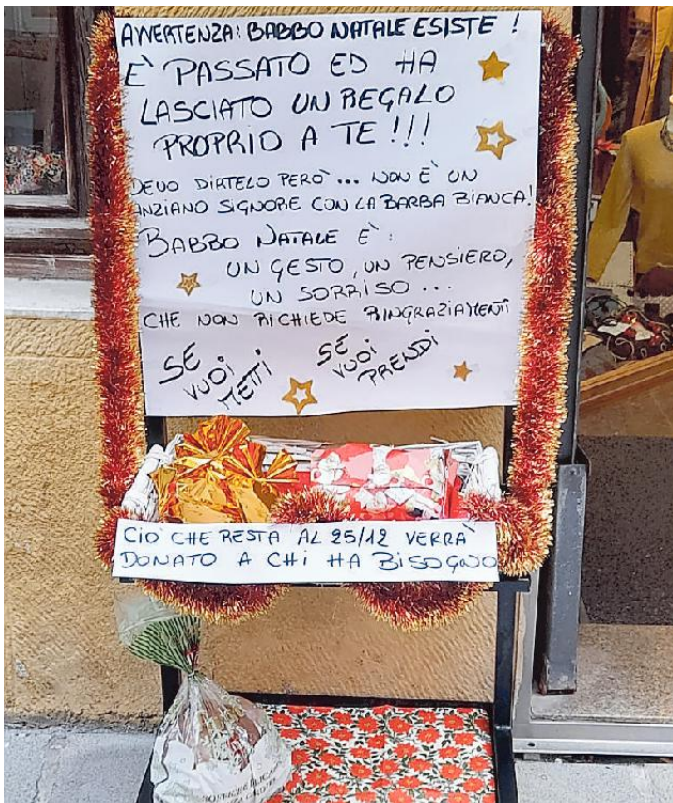 AVVERTENZA: BABBO NATALE ESISTE !
E' PASSATO ED HA
LASCIATO UN REGALO
PROPRIO A TE !!!
DEVO DIRTELO PERÒ ... NON È UN
ANZIANO SIGNORE CON LA BARBA BIANCA!
BABBO NATALE E':
UN GESTO, UN PENSIERO,
UN SORRISO ...
CHE NON RICHIEDE RINGRAZIAMENTI
SE
VUOI
METTI
SE
VUOI
PRENDI
CIO' CHE RESTA AL 25/12 VERRA'
DONATO A CHI HA BISOGNO